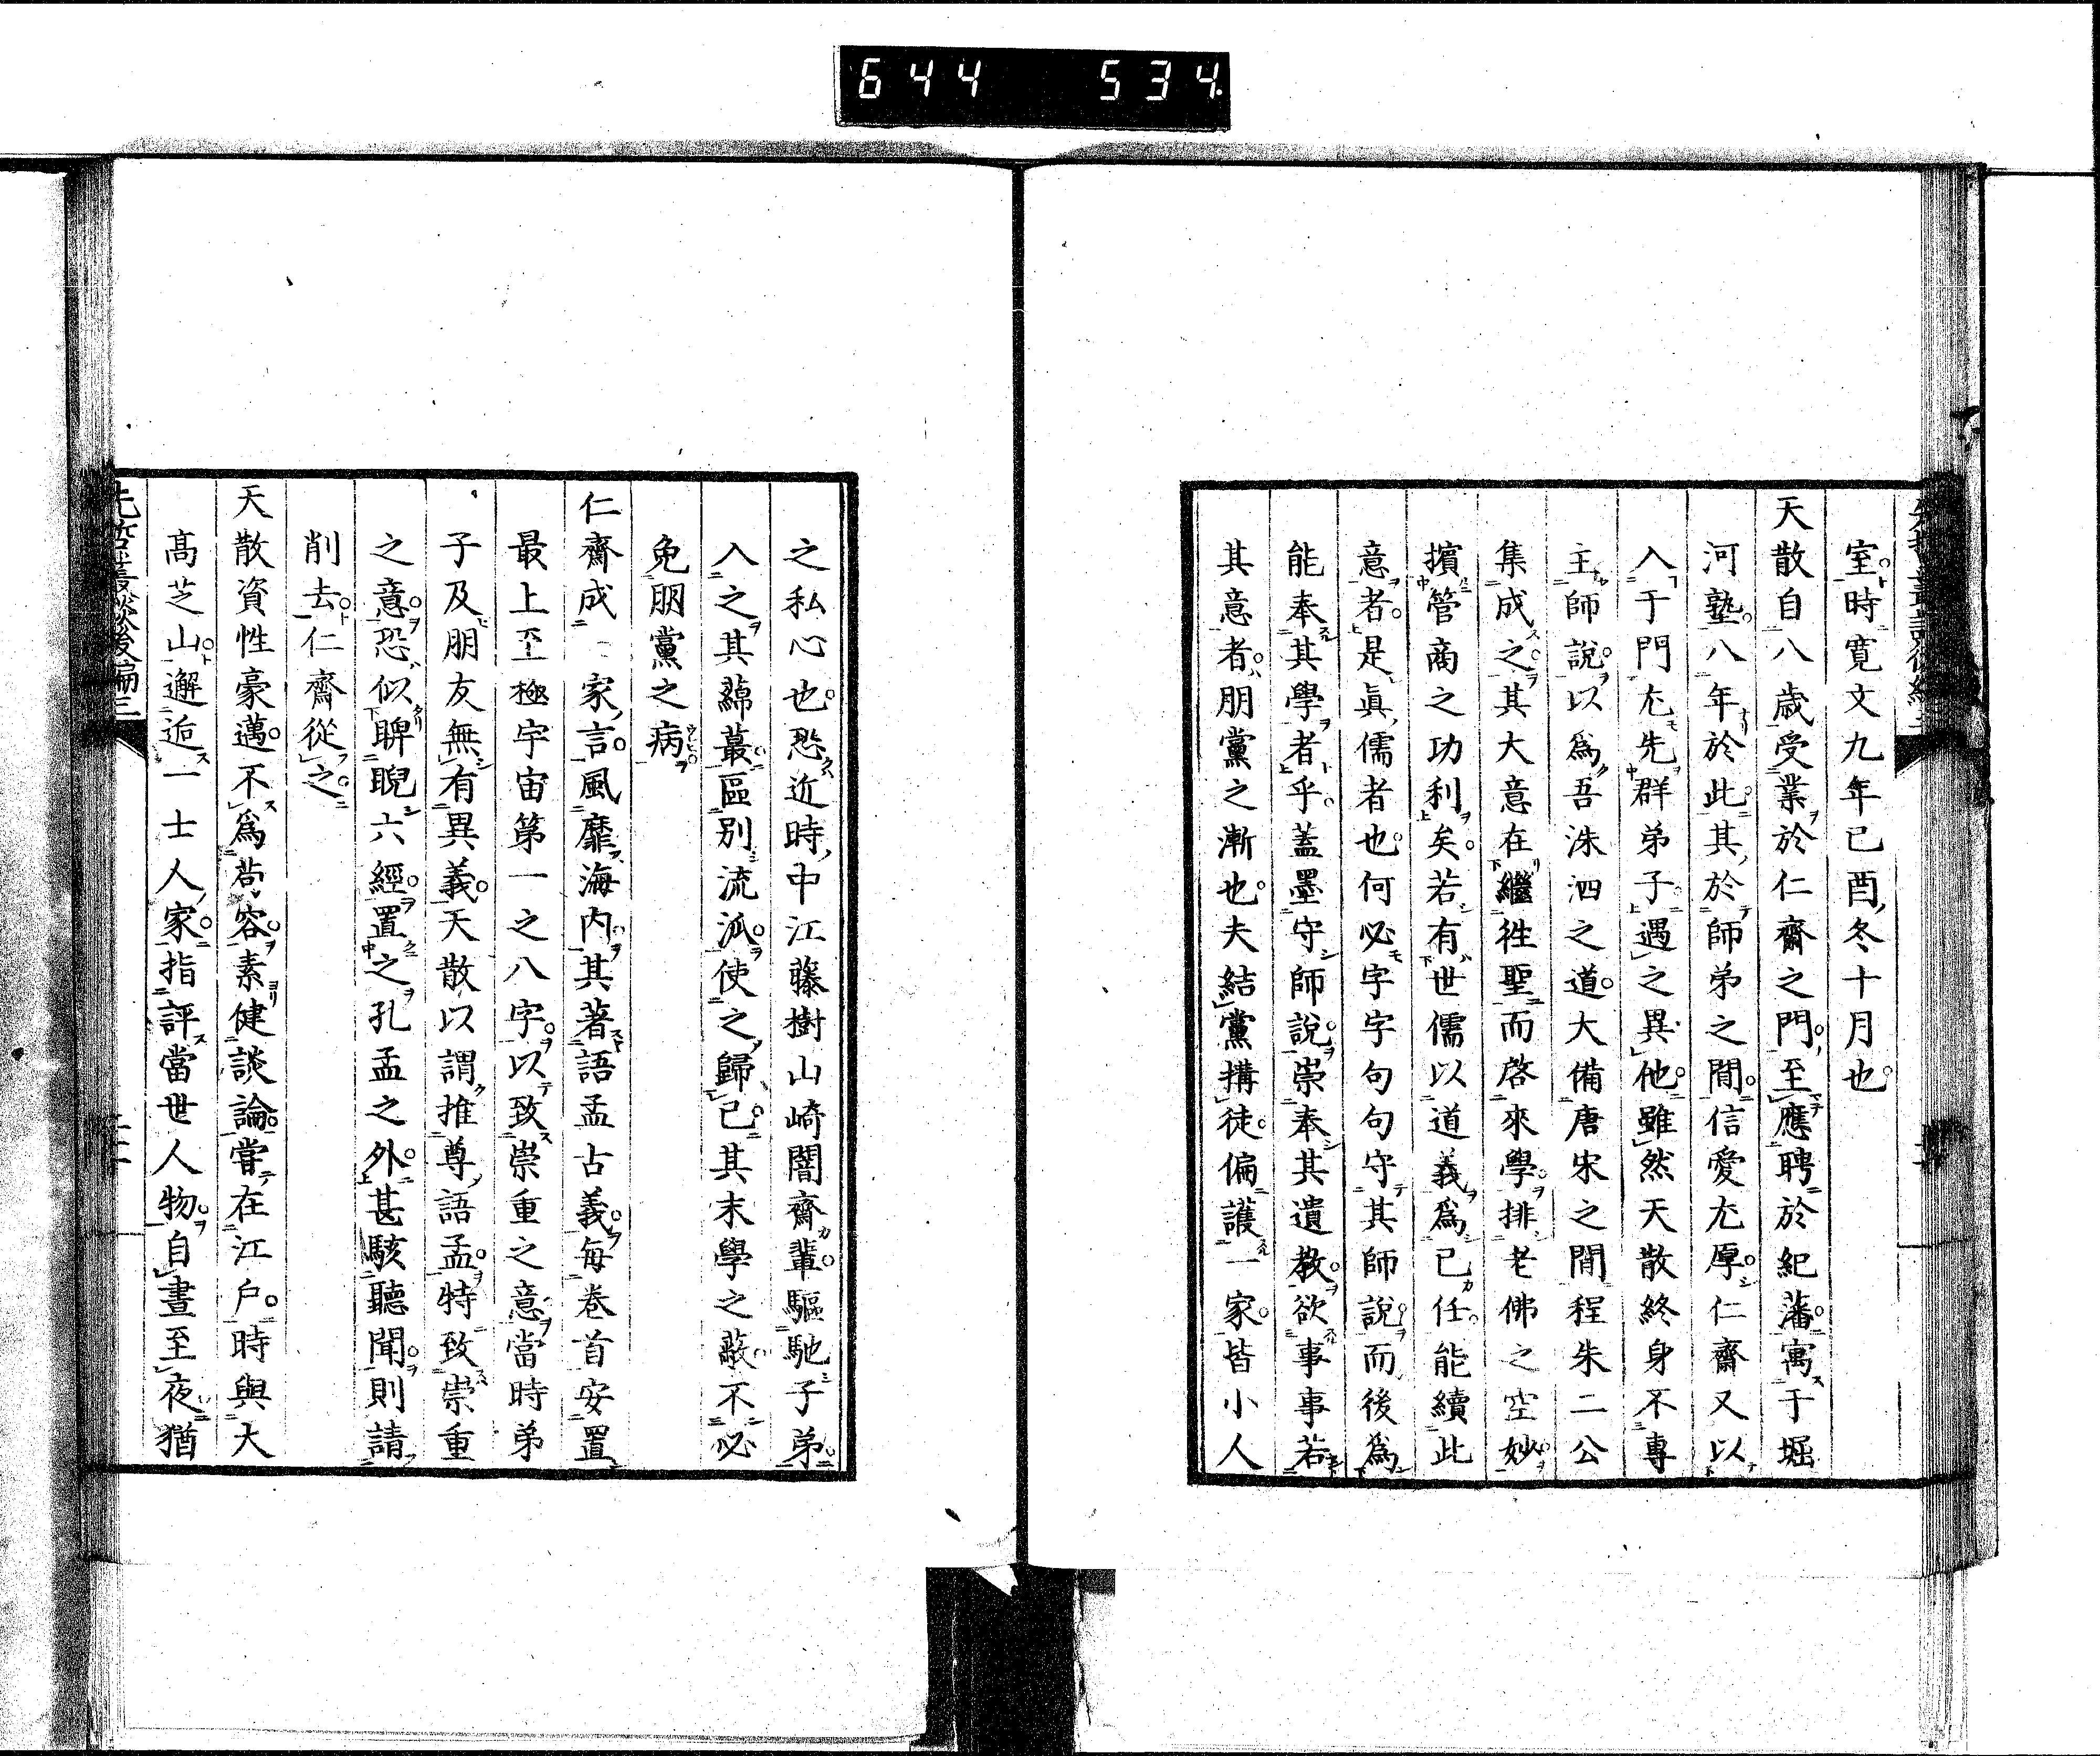 644 534
室時寛文九年己酉冬十月也
天散自八歳受業於仁齋之門至應聘於紀藩寓于堀
河塾八年於此其於師弟之間信愛尤厚仁齋又以
入于門尤先群弟子遇之異他雖然天散終身不專
主師説以爲吾洙泗之道大備唐宋之間程朱二公
集成之其大意在繼徃聖而啓來學排老佛之空妙
擯管商之功利矣若有世儒以道義爲已任能續此
意者是眞儒者也何必字字句句守其師説而後爲
能奉其學者乎蓋墨守師説崇奉其遺教欲事事若
其意者朋黨之漸也夫結黨搆徒偏護一家皆小人
之私心也恐近時中江藤樹山崎闇齋輩驅馳子弟
入之其蘂蕞區别流派使之歸已其末學之蔽不必
免朋黨之病
仁齋成家言風靡海内其著語孟古義毎巻首安置
最上至極宇宙第一之八字以致崇重之意當時弟
子及朋友無有異義天散以謂推尊語孟特致崇重
之意恐似睥睨六經置之孔孟之外甚駭聽聞則請
削去仁齋從之
天散資性豪邁不爲苟容素健談論甞在江戸時與大
高芝山邂逅一士人家指評當世人物自晝至夜猶
先哲叢談後編三